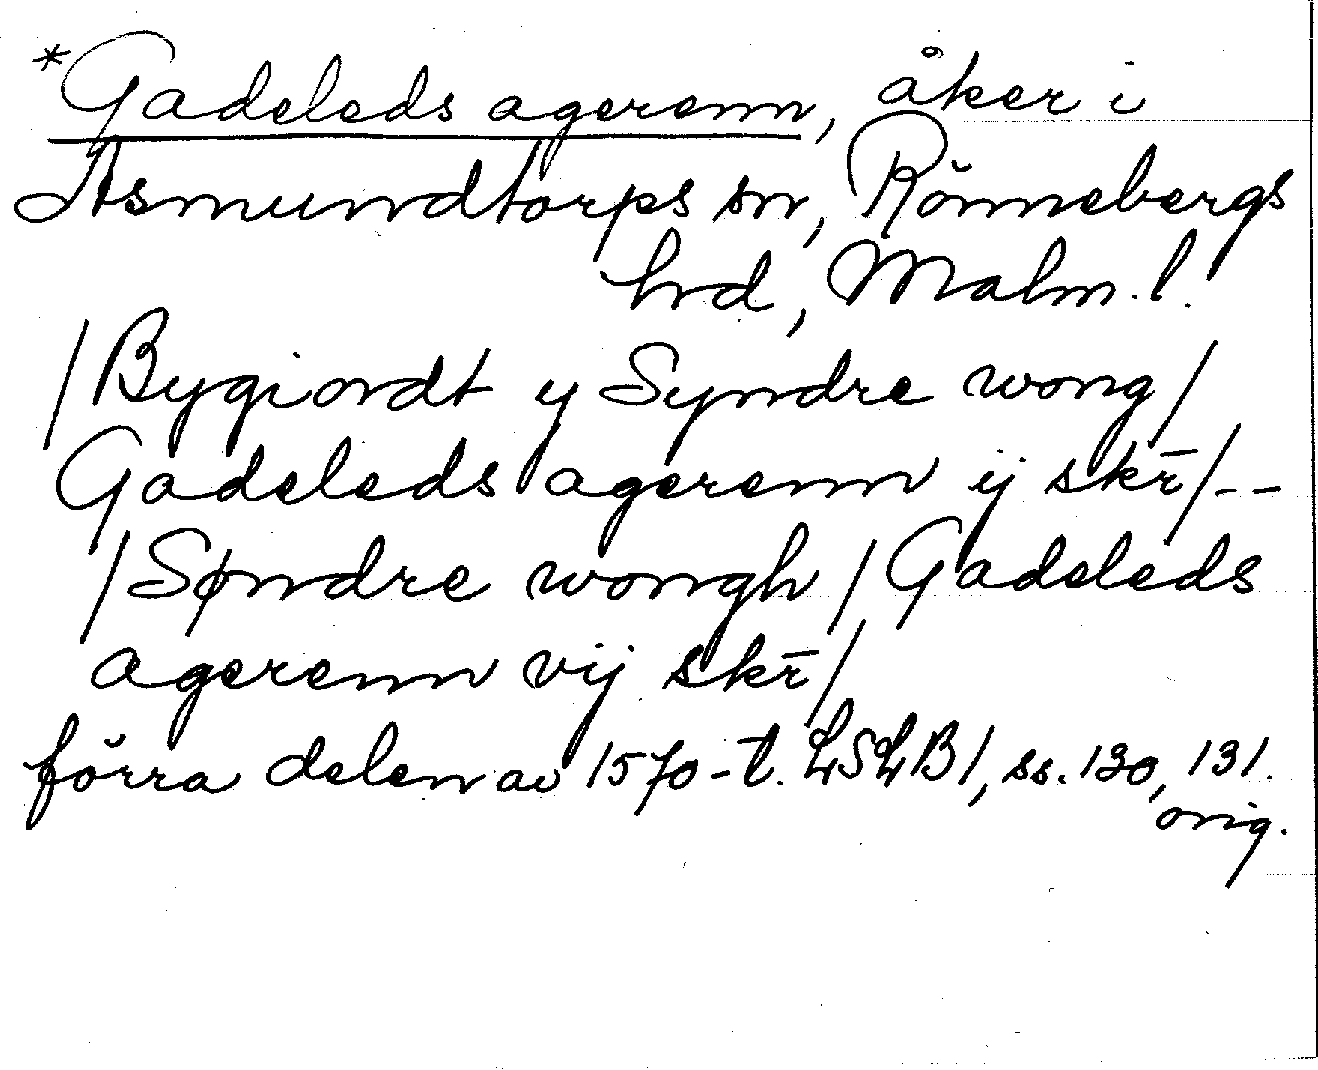 *Gadeleds agerenn, åker i
Asmundtorps sn, Rönnebergs
hrd, Malm. l.
/Bygiordt y Syndre wong/
Gadeleds agerenn ij skr̄/--
/Søndre wongh/Gadeleds
agerenn vij skr̄/
förra delen av 1570-t. LSLB1, ss. 130, 131.
orig.